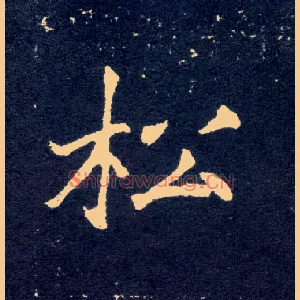 松
Shufawang.CN